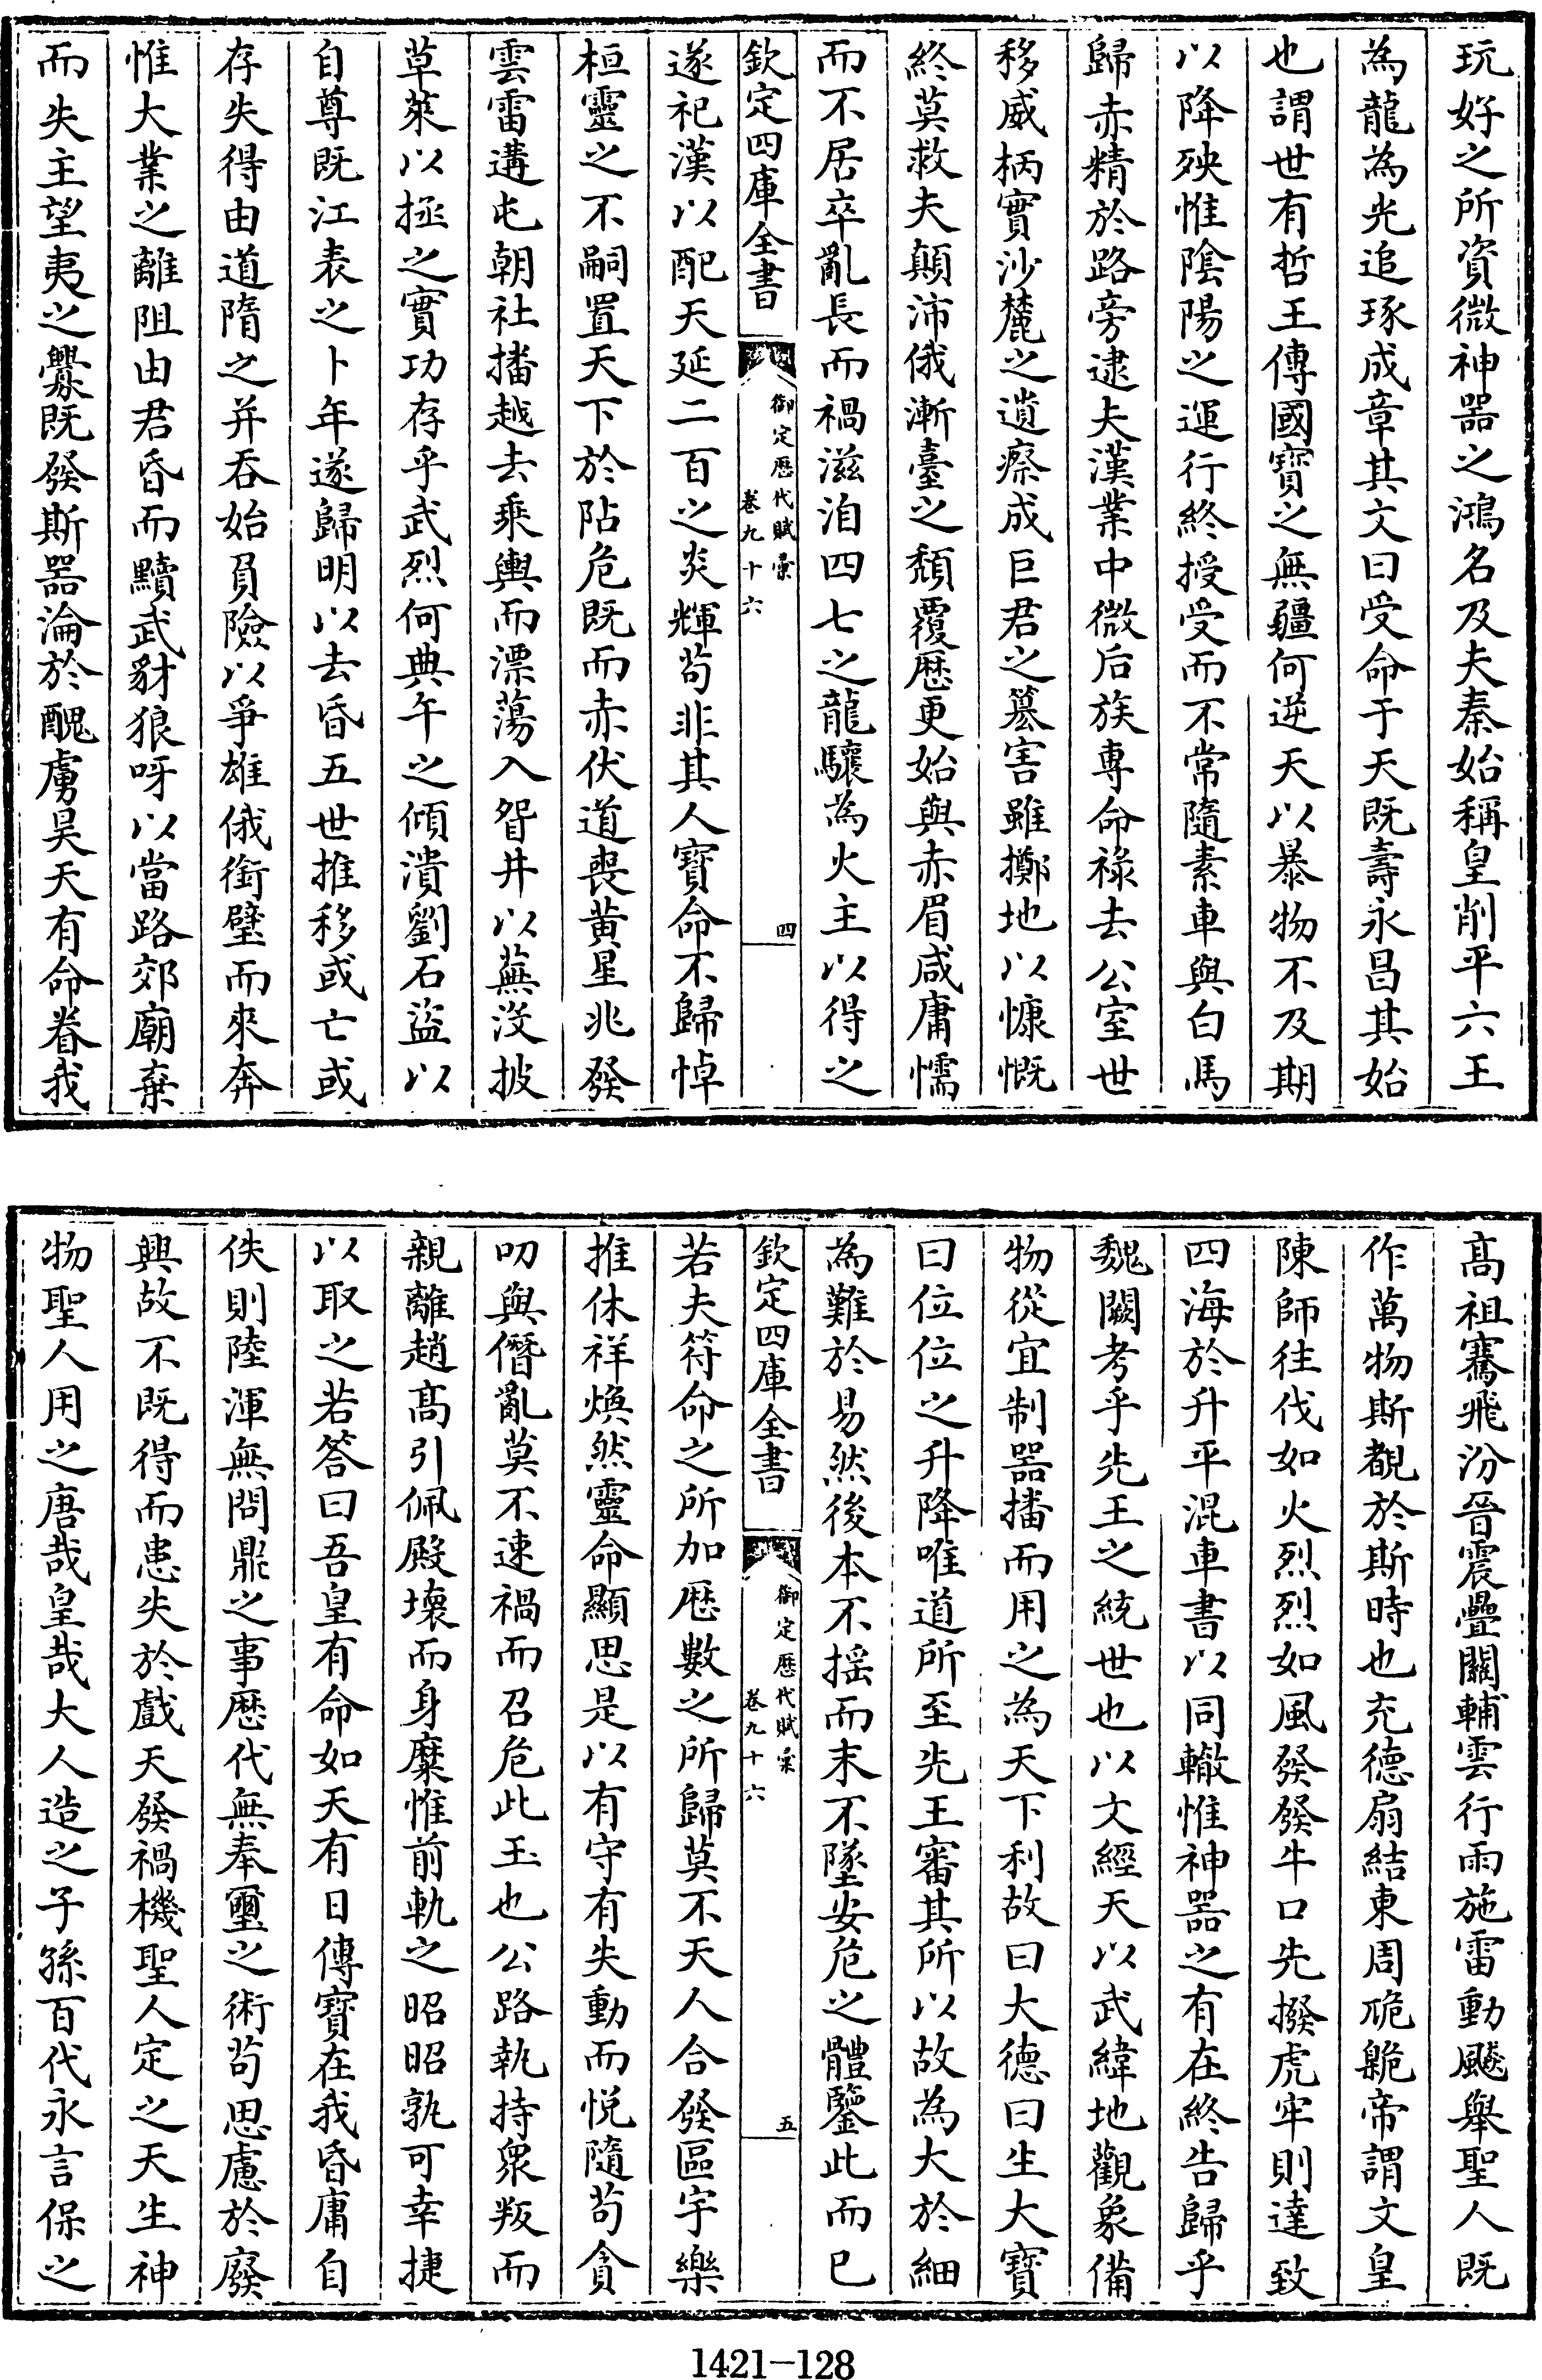 玩好之所資微神器之鴻名及夫秦始稱皇削平六王
為龍為光追琢成章其文曰受命于天既壽永昌其始
也謂世有哲王傳國寳之無疆何逆天以暴物不及期
以降殃惟陰陽之運行終授受而不常隨素車與白馬
歸赤精於路旁逮夫漢業中微后族專命祿去公室世
移威柄實沙麓之遺瘵成巨君之簒害雖擲地以慷慨
終莫救夫顛沛俄漸臺之頽覆歴更始與赤眉咸庸懦
而不居卒亂長而禍滋洎四七之龍驤為火主以得之
欽定四庫全書
御定歴代賦彚
卷九十六
四
遂祀漢以配天延二百之炎輝苟非其人寳命不歸悼
桓靈之不嗣置天下於阽危既而赤伏道喪黄星兆發
雲雷遘屯朝社播越去乘輿而漂蕩入眢井以蕪没披
草萊以拯之實功存乎武烈何典午之傾潰劉石盜以
自尊既江表之卜年遂歸明以去昏五世推移或亡或
存失得由道隋之并吞始負險以爭雄俄銜璧而來奔
惟大業之離阻由君昏而黷武豺狼呀以當路郊廟棄
而失主望夷之釁既發斯器淪於醜虜昊天有命眷我
髙祖騫飛汾晉震疊闗輔雲行雨施雷動飈舉聖人既
作萬物斯覩於斯時也充徳扇結東周脆臲帝謂文皇
陳師往伐如火烈烈如風發發牛口先撥虎牢則達致
四海於升平混車書以同轍惟神器之有在終告歸乎
魏闕考乎先王之統世也以文經天以武緯地觀象備
物從宜制器播而用之為天下利故曰大徳曰生大寳
曰位位之升降唯道所至先王審其所以故為大於細
為難於易然後本不揺而末不墜安危之體鑒此而已
欽定四庫全書
御定歴代賦彚
卷九十六
五
若夫符命之所加歴數之所歸莫不天人合發區宇樂
推休祥煥然靈命顯思是以有守有失動而悦隨苟貪
叨與僭亂莫不速禍而召危此玉也公路執持衆叛而
親離趙髙引佩殿壞而身糜惟前軌之昭昭孰可幸捷
以取之若答曰吾皇有命如天有日傳寳在我昏庸自
佚則陸渾無問鼎之事歴代無奉璽之術苟思慮於廢
興故不既得而患失於戲天發禍機聖人定之天生神
物聖人用之唐哉皇哉大人造之子孫百代永言保之
1421—128